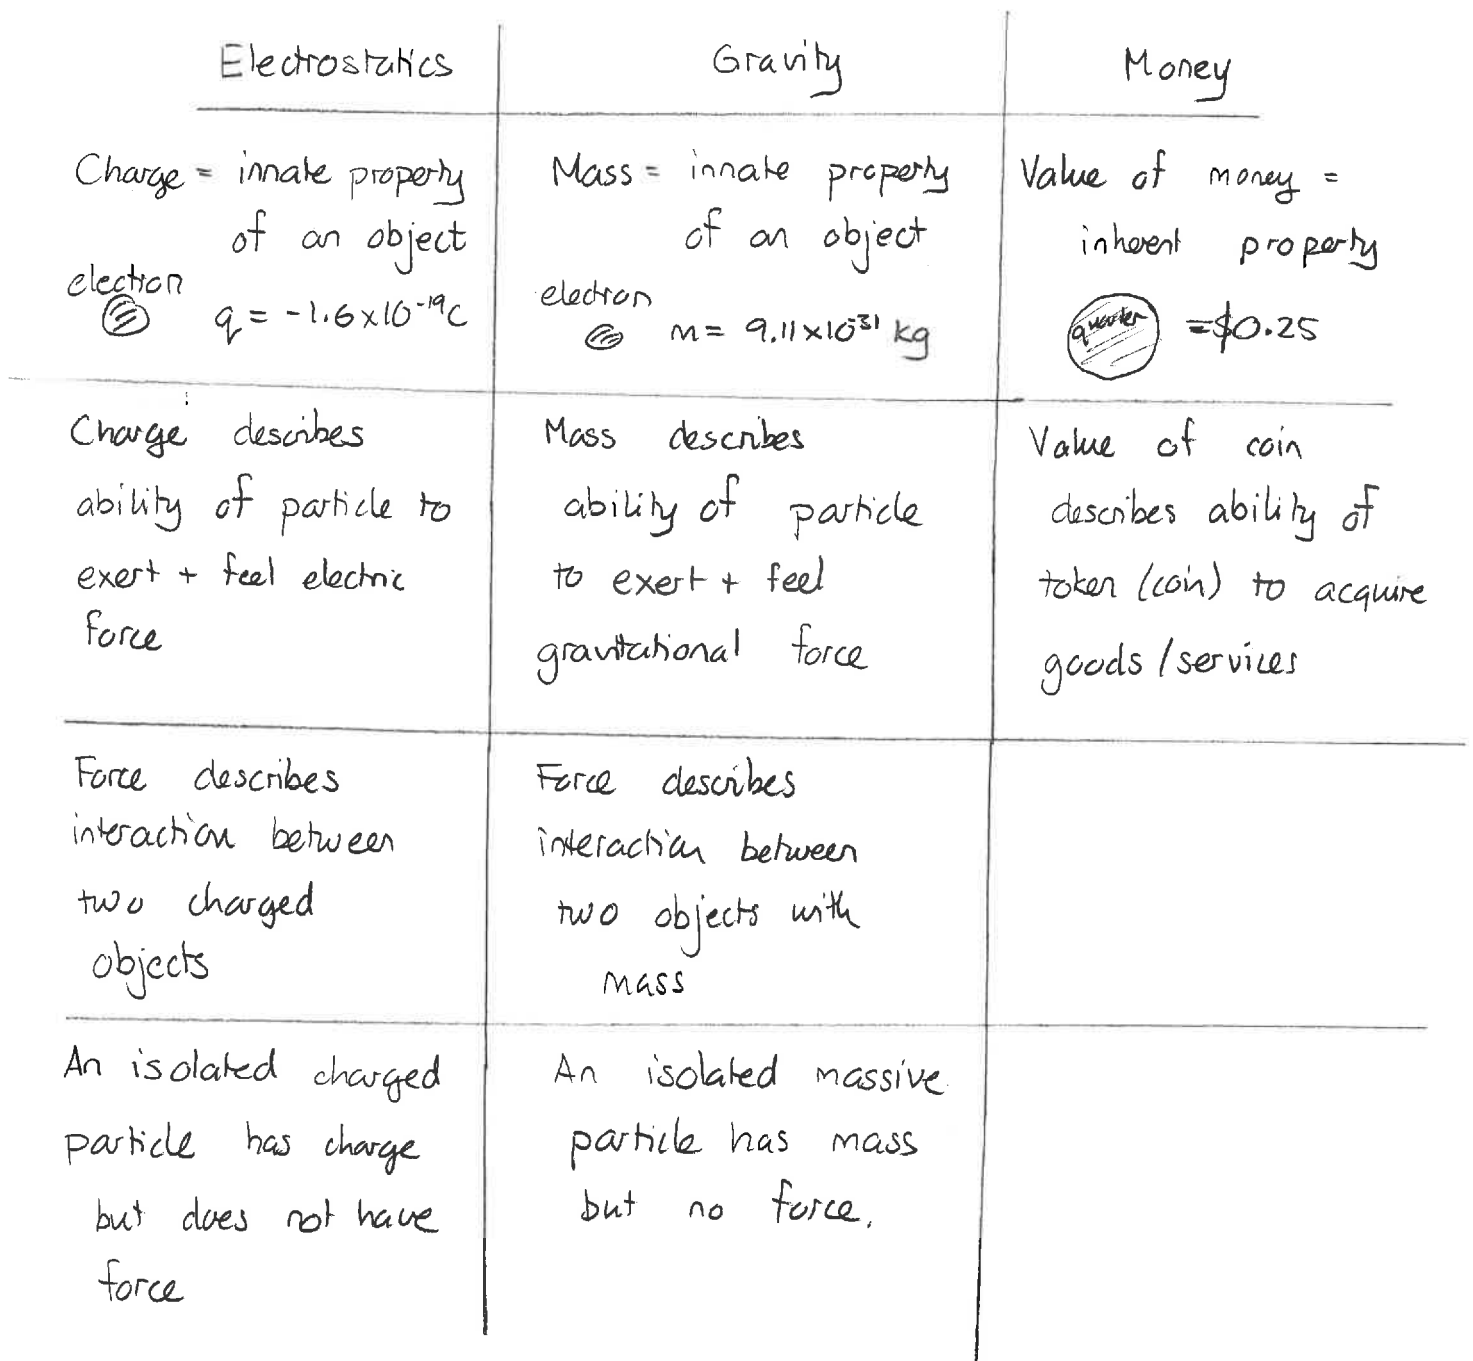 Electrostatics
Gravity
Money
Charge = innate property
of an object
electron
q = -1.6x10⁻¹⁹C
Mass = innate property
of an object
electron
m = 9.11x10⁻³¹ kg
Value of money =
inherent property
quarter
= $0.25
Charge describes
ability of particle to
exert + feel electric
force
Mass describes
ability of particle
to exert + feel
gravitational force
Value of coin
describes ability of
token (coin) to acquire
goods / services
Force describes
interaction between
two charged
objects
Force describes
interaction between
two objects with
mass
An isolated charged
particle has charge
but does not have
force
An isolated massive
particle has mass
but no force.